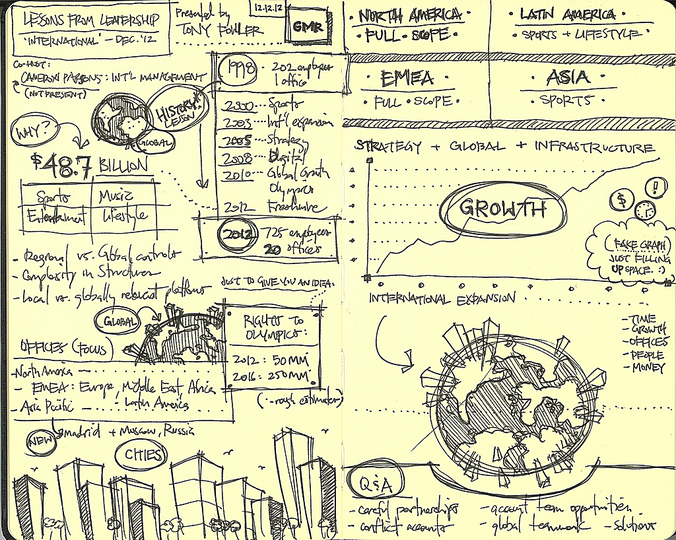 LESSONS FROM LEADERSHIP
'INTERNATIONAL' - DEC. '12
Presented by
TONY FOWLER
12.12.12
GMR
CO-HOST:
CAMERON PARSONS: INT'L MANAGEMENT
(NOT PRESENT)
HISTORY LESSON
GLOBAL
WHY?
$48.7 BILLION
Sports
Music
Entertainment
Lifestyle
- Regional vs. Global controls
- Complexity in Structure
- Local vs. globally relevant platforms
1998
202 employees
1 office
2000 --- Sports
2003 --- Int'l expansion
2005 --- Strategy
2008 --- Digital
2010 --- Global Growth
Olympics
2012
2012
725 employees
20 offices
JUST TO GIVE YOU AN IDEA.
RIGHTS TO
OLYMPICS:
2012: 50MM
2016: 250MM
(*rough estimates)
GLOBAL
OFFICES (FOCUS)
- North America
- EMEA: Europe, Middle East, Africa
- Asia Pacific
- Latin America
NEW
Madrid + Moscow, Russia
CITIES
• NORTH AMERICA •
• FULL SCOPE •
LATIN AMERICA •
• SPORTS + LIFESTYLE •
• EMEA •
• FULL SCOPE •
• ASIA •
• SPORTS •
STRATEGY + GLOBAL + INFRASTRUCTURE
GROWTH
$
!
(FAKE GRAPH
JUST FILLING
UP SPACE. :)
INTERNATIONAL EXPANSION
- TIME
- GROWTH
- OFFICES
- PEOPLE
- MONEY
Q&A
- careful partnerships
- conflict accounts
- account team opportunities
- global teamwork
- solutions